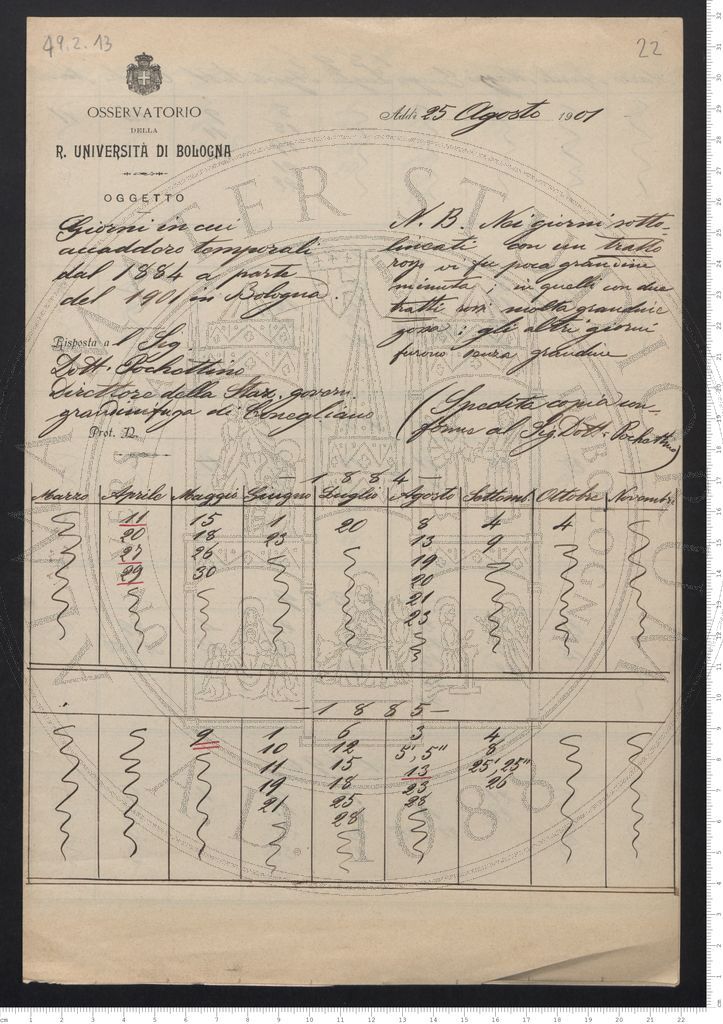 49.2.13
22
OSSERVATORIO
DELLA
R. UNIVERSITÀ DI BOLOGNA
Addì 25 Agosto 1901
OGGETTO
Giorni in cui
accaddero temporali
dal 1884 a parte
del 1901 in Bologna.
N. B. Nei giorni sotto-
lineati con un tratto
rosso vi fu poca grandine
minuta; in quelli con due
tratti rossi molta grandine
grossa; gli altri giorni
furono senza grandine
Risposta a l' Sig.
Dott. Pochettino
Direttore della Staz. govern.
grandinifuga di Conegliano
Prot. N.
(Spedita copia con-
forme al Sig. Dott. Pochettino)
- 1884 -
Marzo Aprile Maggio Giugno Luglio Agosto Settemb. Ottobre Novembre
11 15 1 20 8 4 4
20 18 23 13 9
27 26 19
29 30 20
21
23
- 1885 -
9 1 6 3 4
10 12 5', 5" 8
11 15 13 25', 25"
19 18 23 26
21 25 28
28
ALMA MATER STUDIORUM
A.D. 1088